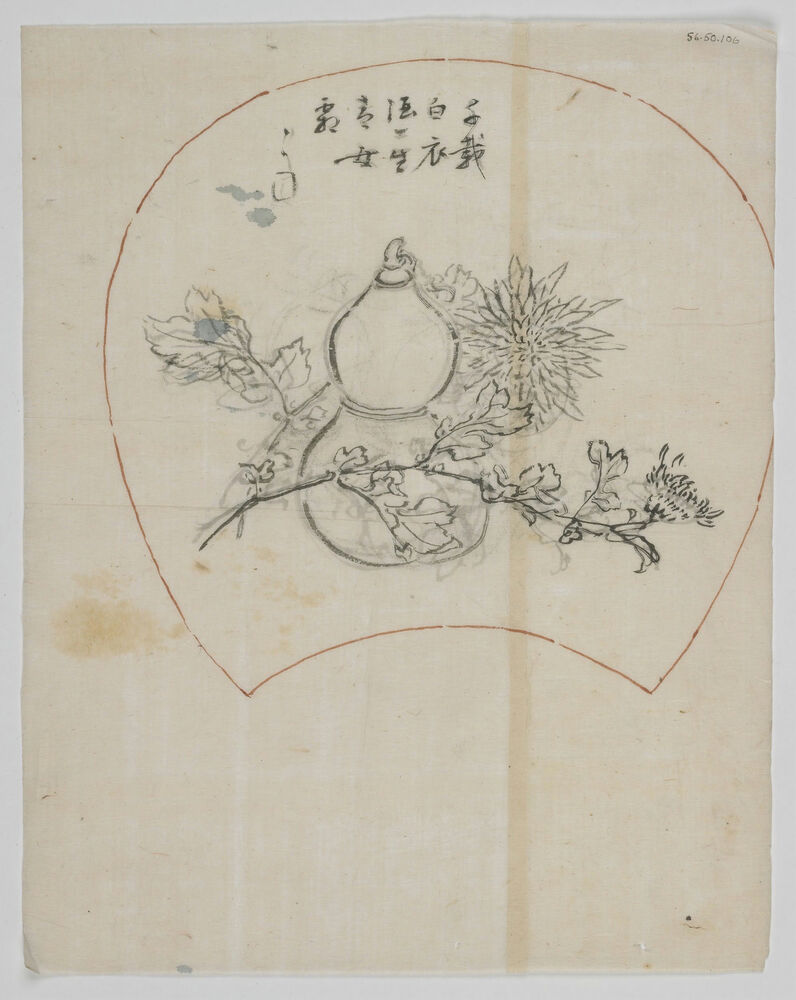 56.50.106
千載
白衣
酒一生
青女
霜